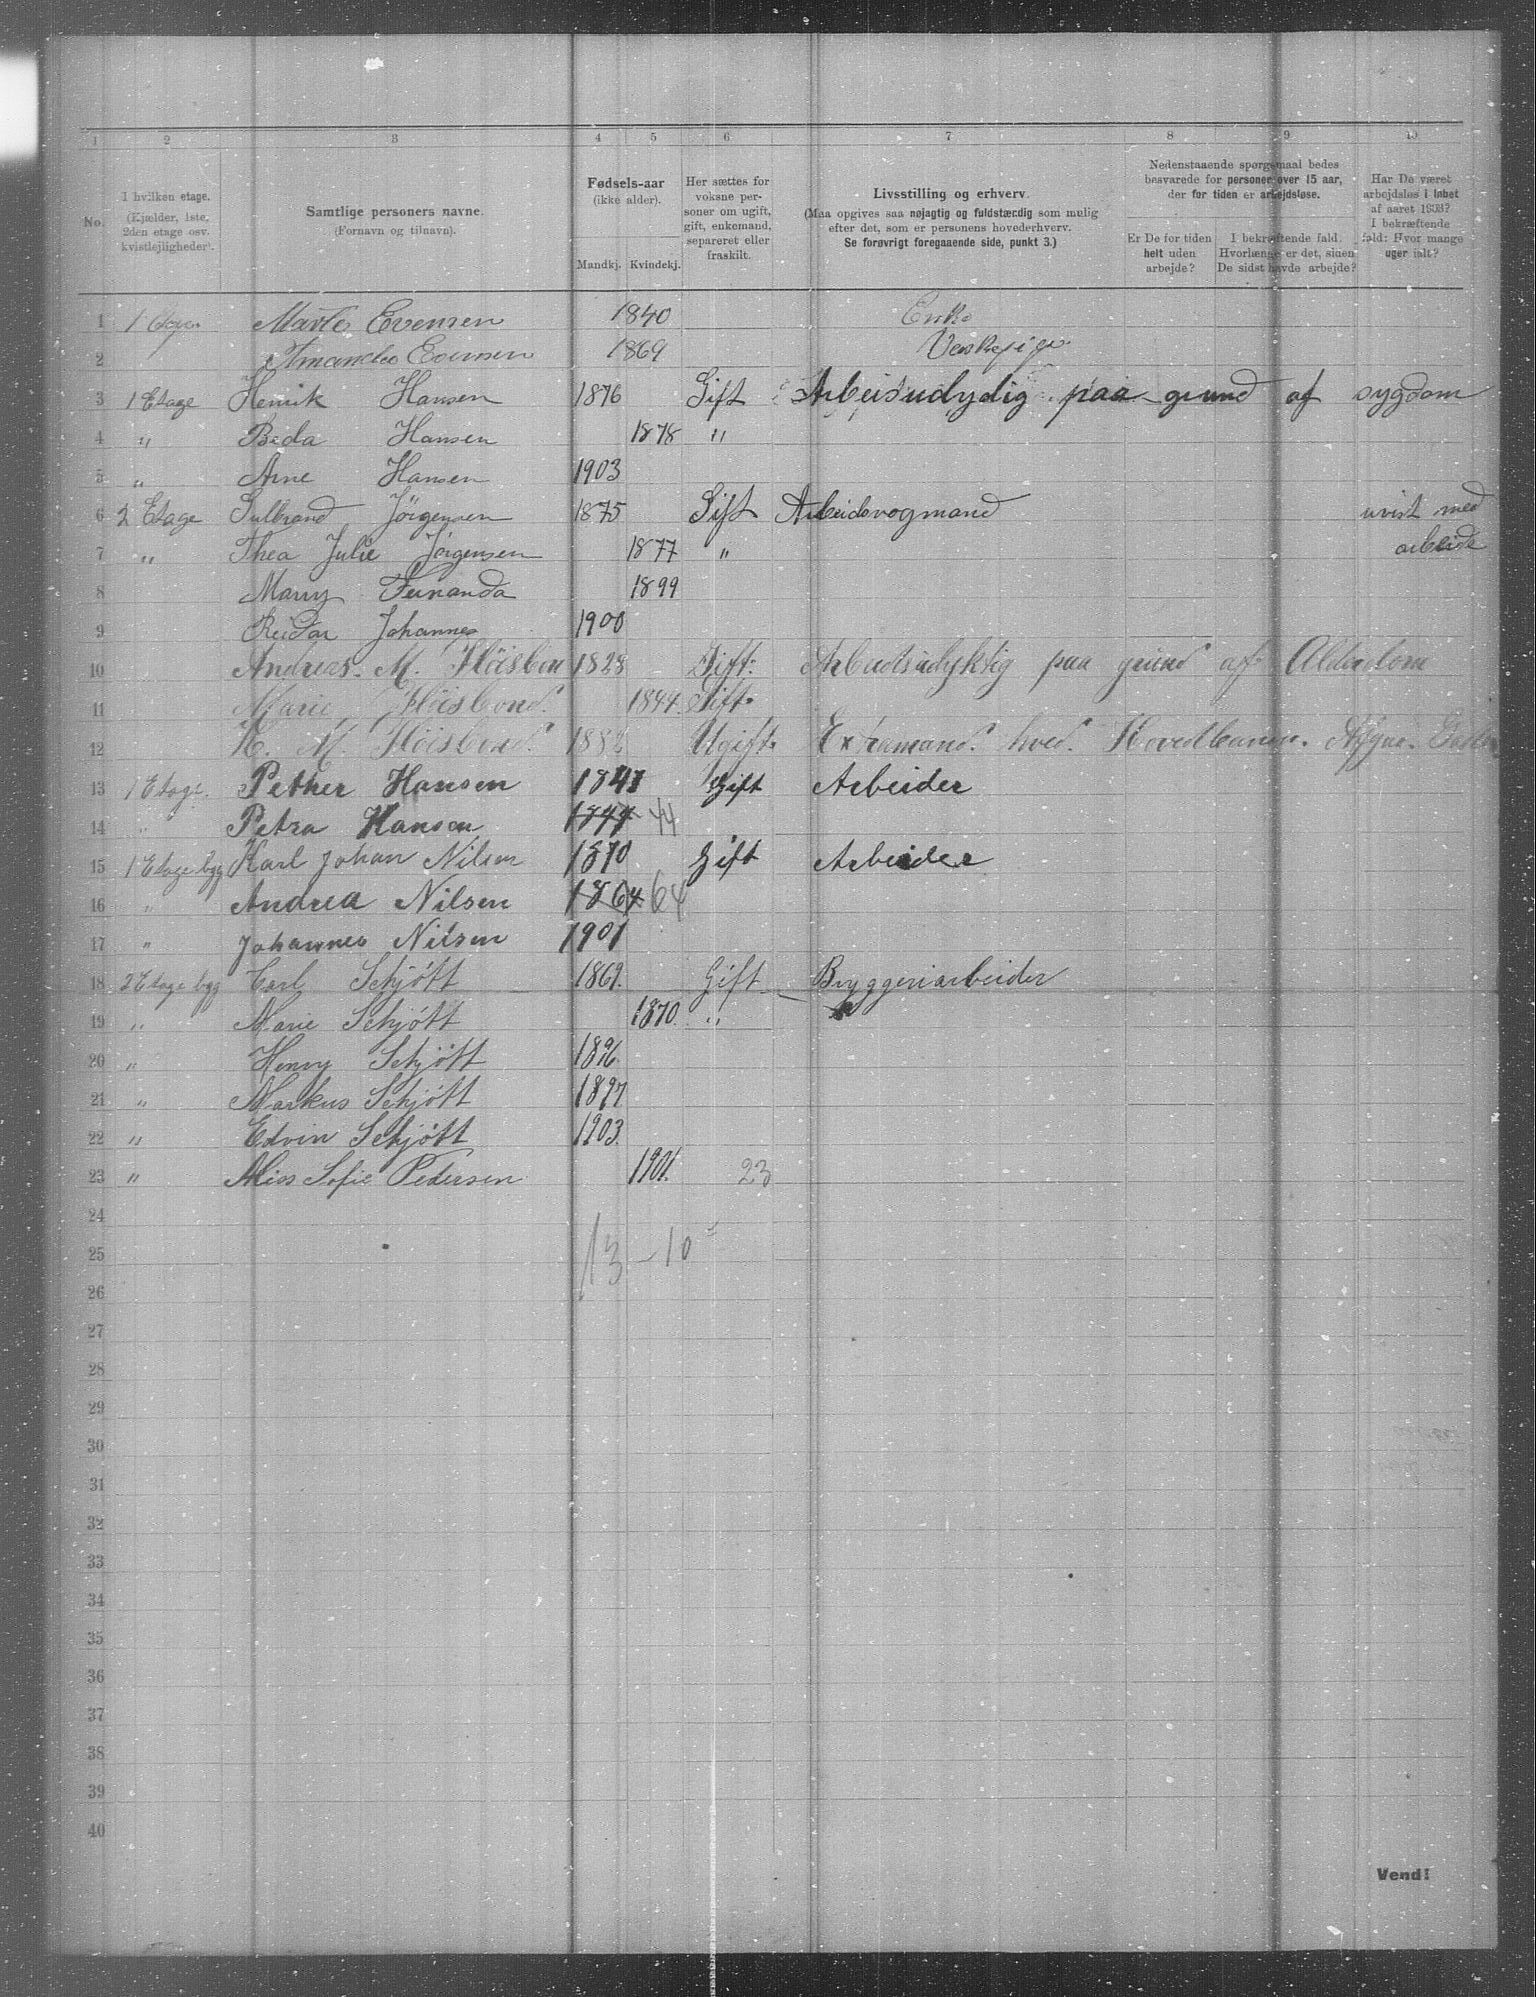 1 2 3 4 5 6 7 8 9 10
No.
I hvilken etage.
(Kjælder, 1ste,
2den etage osv.
kvistlejligheder).
Samtlige personers navne.
(Fornavn og tilnavn).
Fødsels-aar
(ikke alder).
Mandkj. Kvindekj.
Her sættes for
voksne per-
soner om ugift,
gift, enkemand,
separeret eller
fraskilt.
Livsstilling og erhverv.
(Maa opgives saa nøjagtig og fuldstændig som mulig
efter det, som er personens hovederhverv.
Se forøvrigt foregaaende side, punkt 3.)
Nedenstaaende spørgsmaal bedes
besvarede for personer over 15 aar,
der for tiden er arbejdsløse.
Er De for tiden
helt uden
arbejde?
I bekræftende fald.
Hvorlænge er det, siden
De sidst havde arbejde?
Har De været
arbejdsløs i løbet
af aaret 1903?
I bekræftende
fald: Hvor mange
uger ialt?
1 1 Etage Marte Evensen 1840 Enke
2 Amanda Evensen 1869 Vaskepige
3 1 Etage Henrik Hansen 1876 Gift Arbeisudydig paa grund af sygdom
4 " Beda Hansen 1878 "
5 " Arne Hansen 1903
6 2 Etage Gulbrand Jörgensen 1875 Gift Arbeidsvogmand uvist med
7 " Thea Julie Jørgensen 1877 " arbeide
8 Marry Fernanda 1899
9 Reidar Johannes 1900
10 Andreas. M. Höisbon 1828 Gift: Arbeidsudyktig paa grund af Alderdom
11 Marie Höisbond. 1844. Gift.
12 K. M. Höisbond. 188 Ugift. Extramand. hved. Hovedbanen.
13 1 Etage. Pether Hansen 1841 Gift Arbeider
14 " Petra Hansen 1844 44
15 1 Etage bygg Karl Johan Nilsen 1870 Gift Arbeider
16 " Andrea Nilsen 1864 64
17 " Johannes Nilsen 1901
18 2 Etage bygg Carl Schjött 1869. Gift Bryggeriarbeider
19 " Marie Schjött 1870. "
20 " Henry Schjött 1896.
21 " Markus Schjött 1897
22 " Edvin Schjött 1903.
23 " Miss Sofie Pedersen 1901. 23
24
25 13 – 10
26
27
28
29
30
31
32
33
34
35
36
37
38
39
40
Vend!